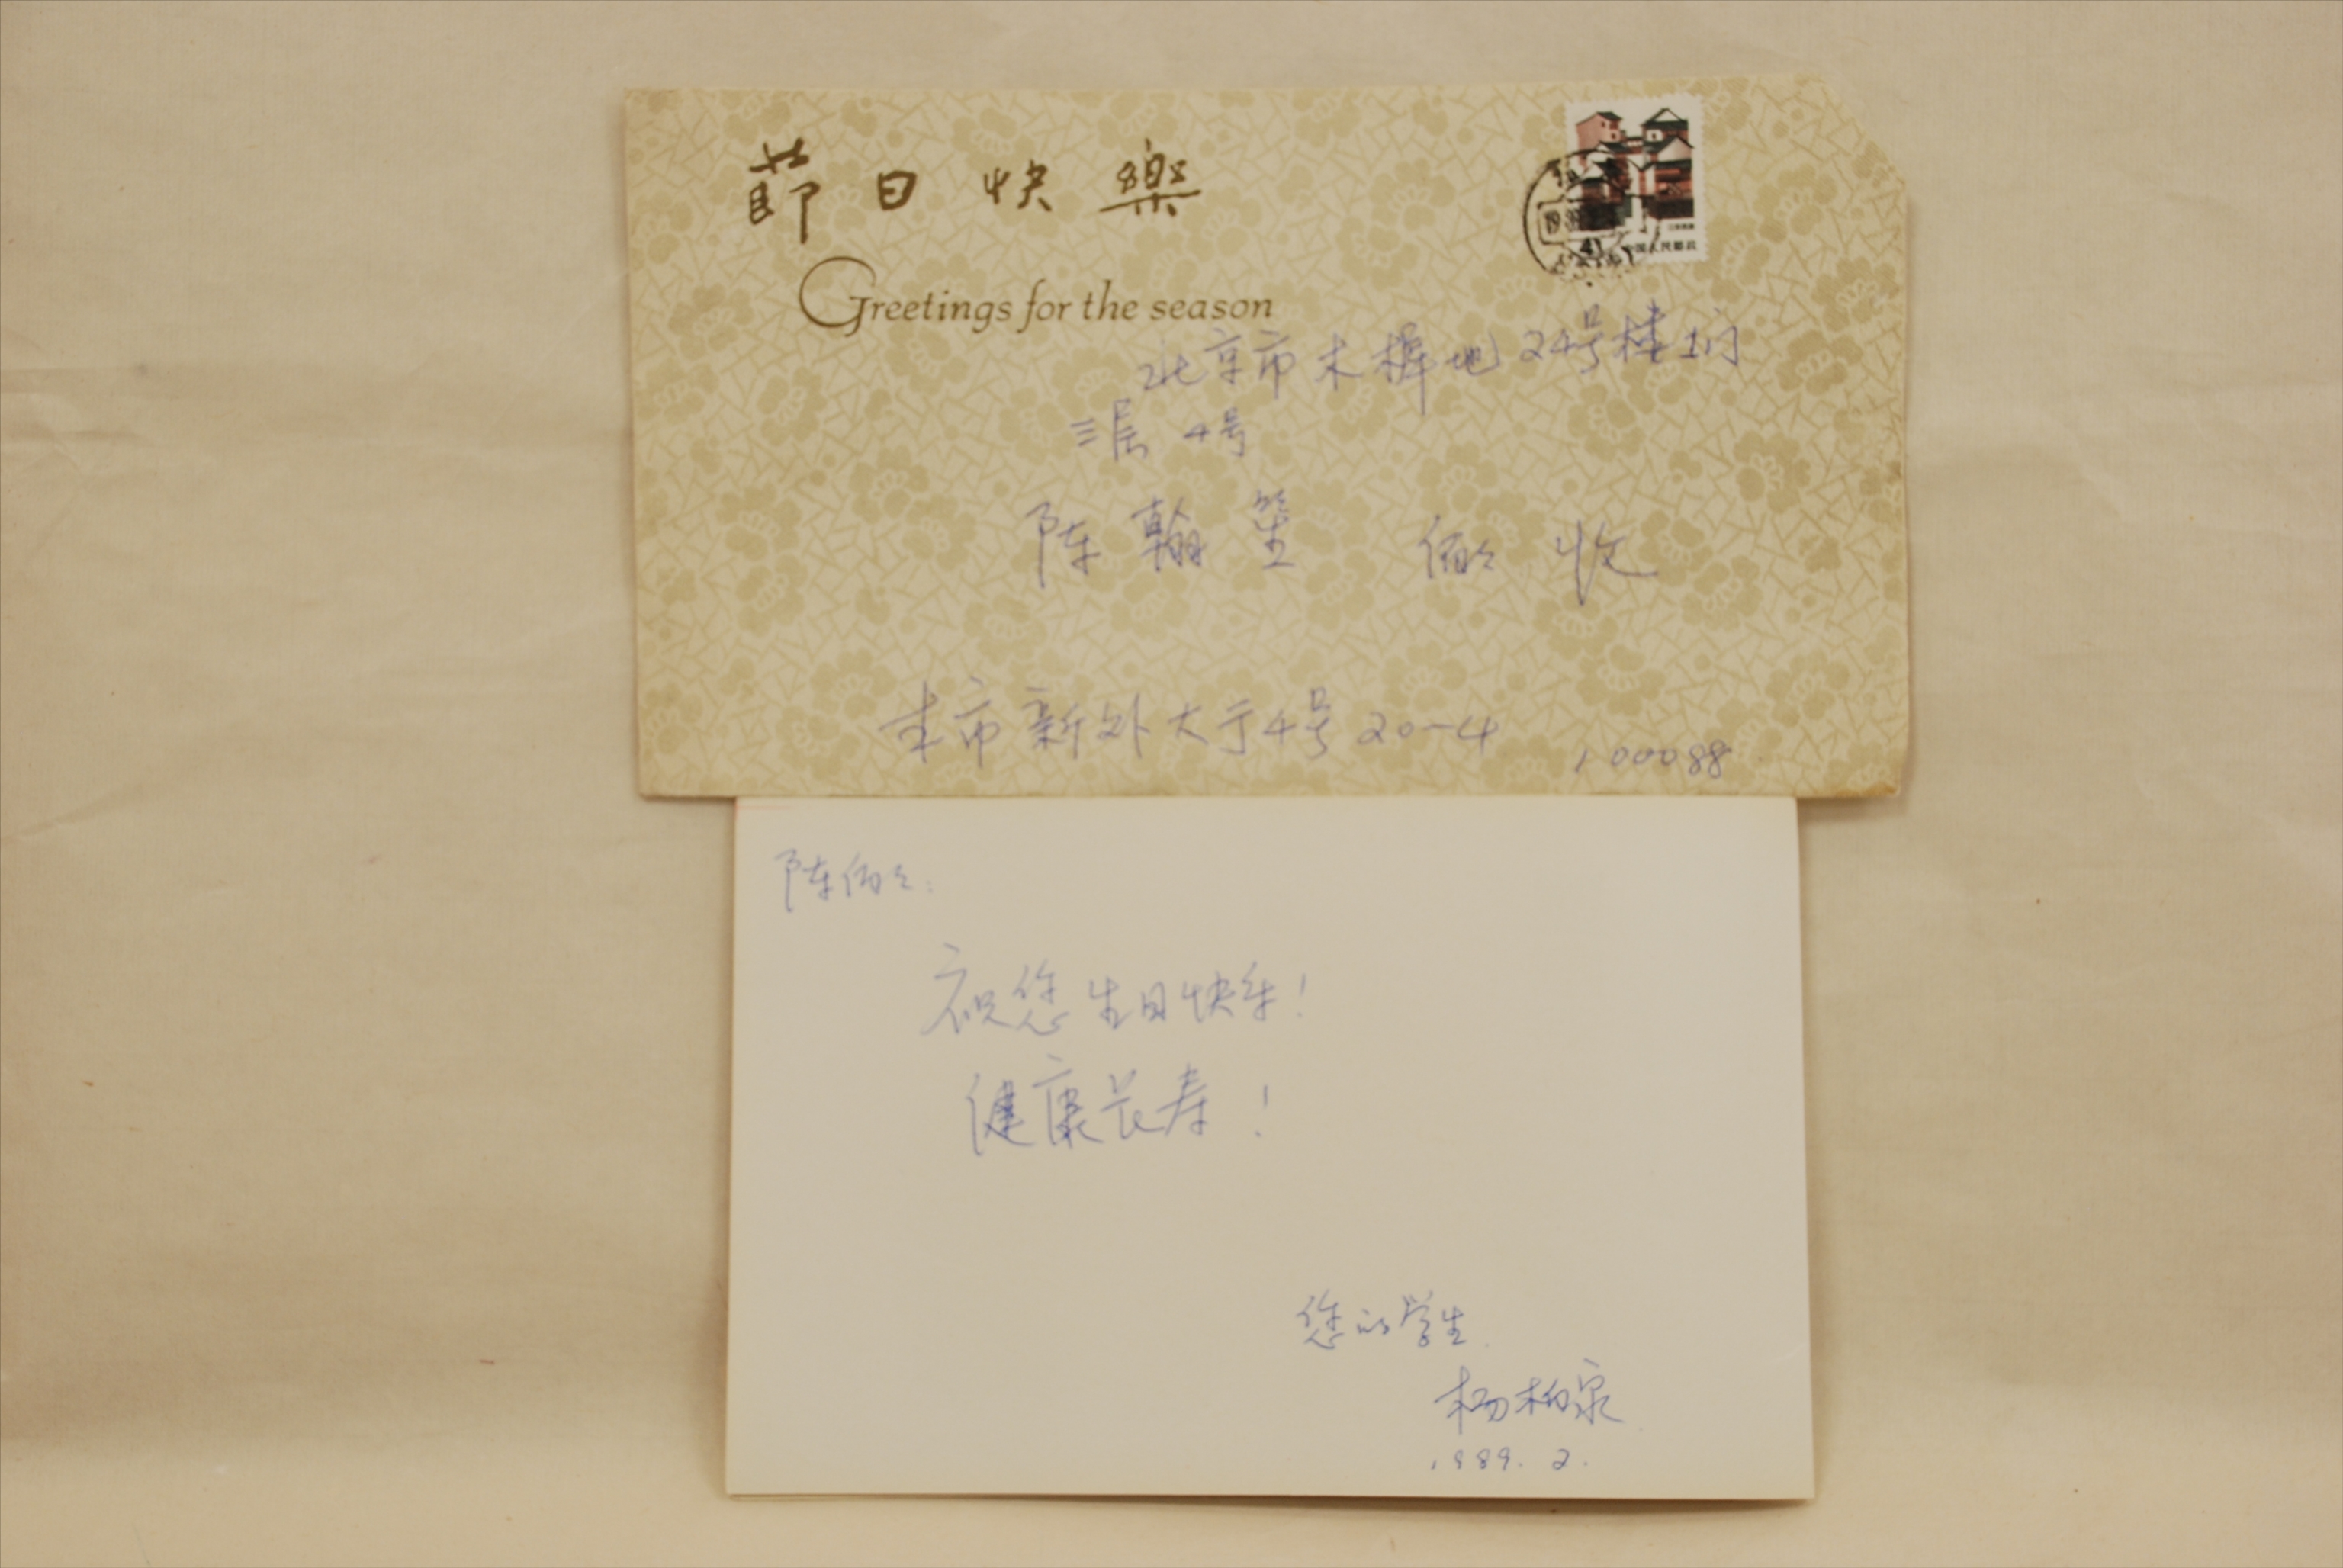 節日快樂
Greetings for the season
中国人民邮政
北京市木樨地24号楼1门
三层 4号
陈翰笙 伯伯 收
本市新外大于4号20-4
100088
陈伯伯:
祝您生日快乐!
健康长寿!
您的学生
杨柏泉
1989.2.